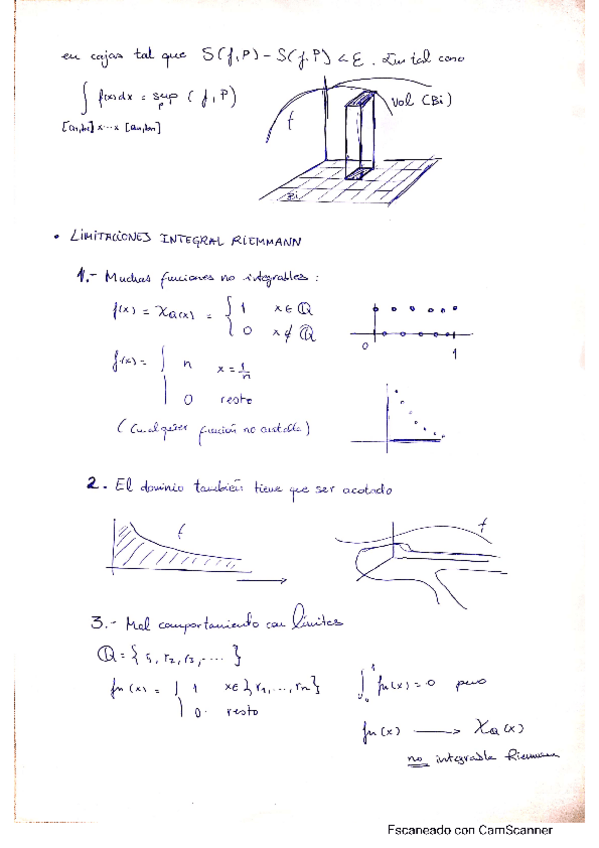 en cajas tal que S(f,P) - S(f,P) < ε.
∫ f(x)dx = sup (f,P)
P
[a1,b1]x...x [an,bn]
f
Vol (Bi)
Bi
• LIMITACIONES INTEGRAL RIEMMANN
1.- Muchas funciones no integrables :
f(x) = χQ(x) = { 1 x ∈ ℚ
0 x ∉ ℚ
0
1
f(x) = { n x = 1/n
0 resto
(Cualquier función no acotada)
2. El dominio también tiene que ser acotado
f
f
3.- Mal comportamiento con límites
ℚ = { r1, r2, r3, .... }
fn(x) = { 1 x∈ {r1, ..., rn}
0 resto
∫₀¹ fn(x) = 0 pero
fn(x) ⟶ χQ(x)
no integrable Riemann
Escaneado con CamScanner